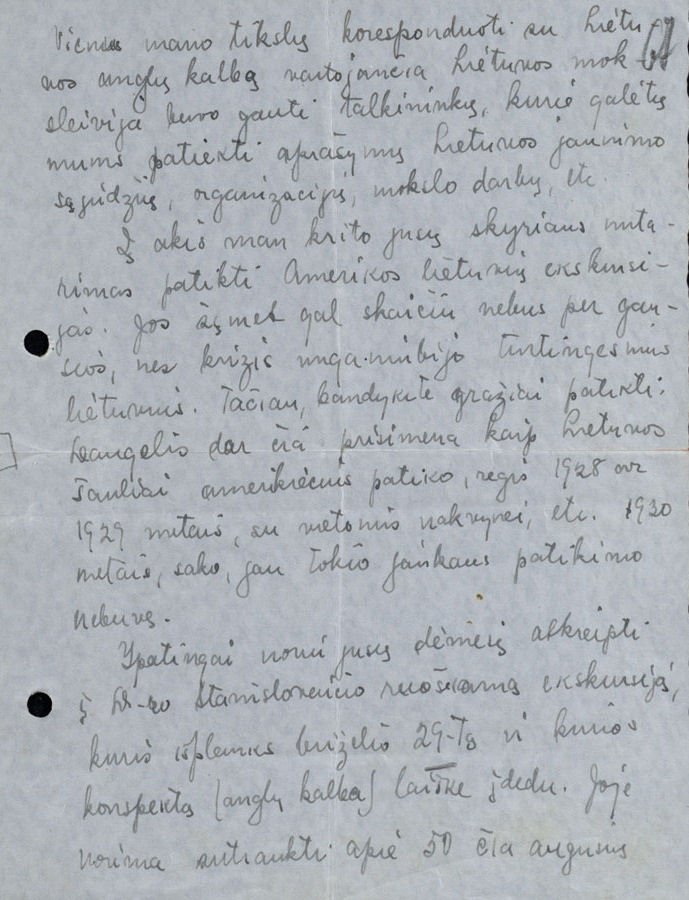 Vienas mano tikslų koresponduoti su Lietu-
vos anglų kalbą vartojančia Lietuvos mok-
sleivija buvo gauti talkininkų, kurie galėtų
mums patiekti aprašymų Lietuvos jaunimo
sąjudžių, organizacijų, mokslo darbų, etc.
Į akis man krito jusų skyriaus nuta-
rimas patikti Amerikos lietuvių ekskursi-
jas. Jos šįmet gal skaičiu nebus per gau-
sios, nes krizis
lietuvius. Tačiau, bandykite gražiai patikti:
Daugelis dar čia prisimena kaip Lietuvos
šauliai amerikiečius patiko, regis 1928 ar
1929 metais, su vietomis nakvynei, etc. 1930
metais, sako, jau tokio jaukaus patikimo
nebuvę.
Ypatingai noriu jusų dėmesį atkreipti
į Dr-ro Stanislovaičio ruošiamą ekskursiją,
kuris išplauks birželio 29-tą ir kurios
konspektą (anglų kalba) laiške įdedu. Joje
norima sutraukti apie 50 čia augusių